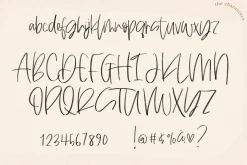 abcdefghijklmnopqrstuvwxyz
ABCDEFGHIJKLMN
OPQRSTUVWXYZ
1234567890 !@#$%&?